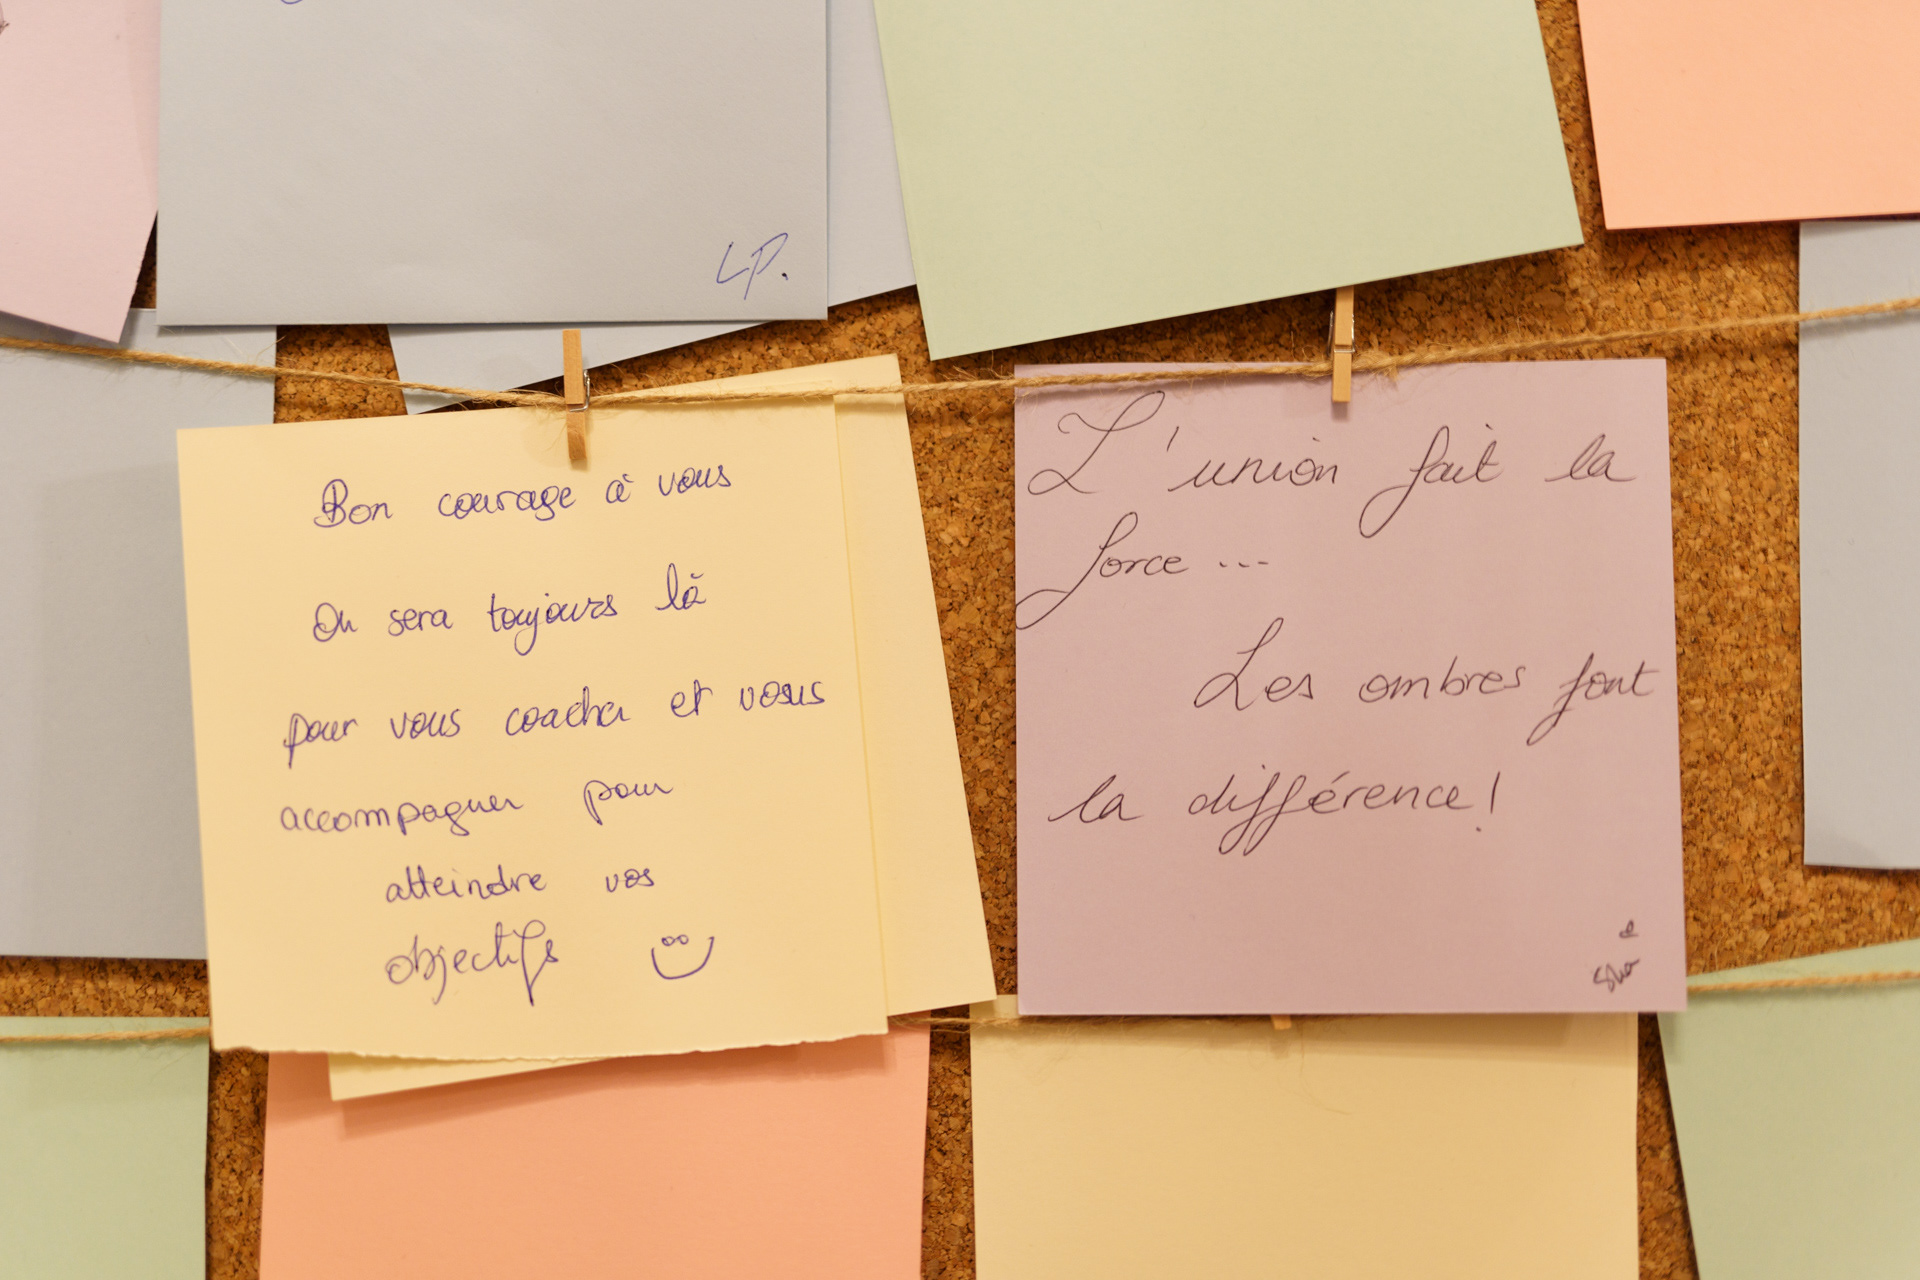 LP.
Bon courage à vous
On sera toujours là
pour vous coacher et vous
accompagner pour
atteindre vos
objectifs
L'union fait la
force ...
Les ombres font
la différence !
Sha